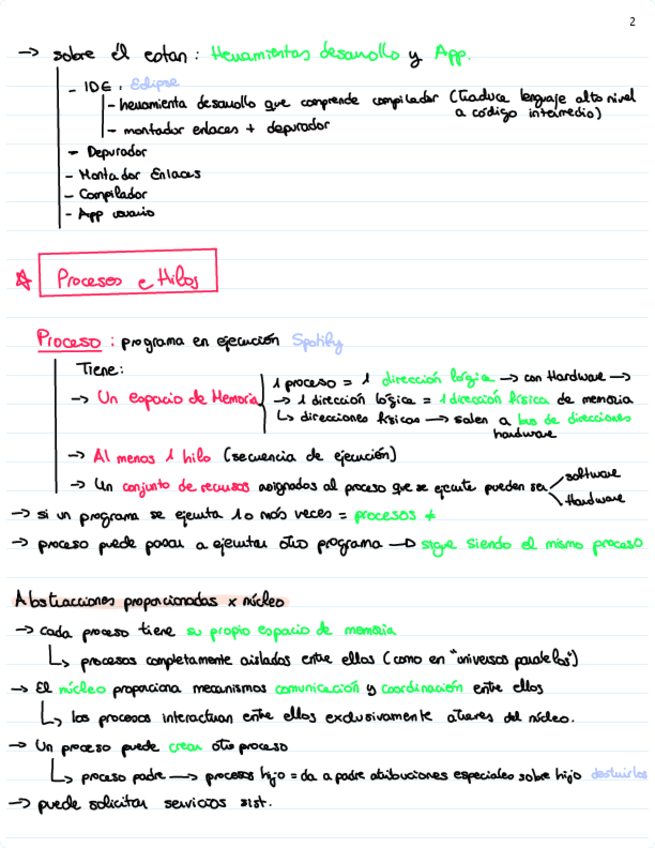 2
→ sobre él estan: Herramientas desarrollo y App.
- IDE: Eclipse
- herramienta desarrollo que comprende compilador (Traduce lenguaje alto nivel
a código intermedio)
- montador enlaces + depurador
- Depurador
- Montador Enlaces
- Compilador
- App usuario
Procesos e Hilos
Proceso: programa en ejecución Spotify
Tiene:
→ Un espacio de Memoria
1 proceso = 1 dirección lógica → con Hardware →
→ 1 dirección lógica = 1 dirección física de memoria
↳ direcciones físicas → salen a bus de direcciones
hardware
→ Al menos 1 hilo (secuencia de ejecución)
→ Un conjunto de recursos asignados al proceso que se ejecute pueden ser
software
Hardware
→ si un programa se ejecuta 1 o más veces = procesos ≠
→ proceso puede pasar a ejecutar otro programa → sigue siendo el mismo proceso
Abstracciones proporcionadas x núcleo
→ cada proceso tiene su propio espacio de memoria
↳ procesos completamente aislados entre ellos (como en "universos paralelos")
→ El núcleo proporciona mecanismos comunicación y coordinación entre ellos
↳ los procesos interactuan entre ellos exclusivamente através del núcleo.
→ Un proceso puede crear otro proceso
↳ proceso padre → procesos hijo = da a padre atribuciones especiales sobre hijo destruirlos
→ puede solicitar servicios sist.